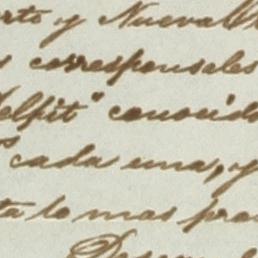 y Nueva
corresponsales
elpit" conocido
cada una, y
ta lo mas pra